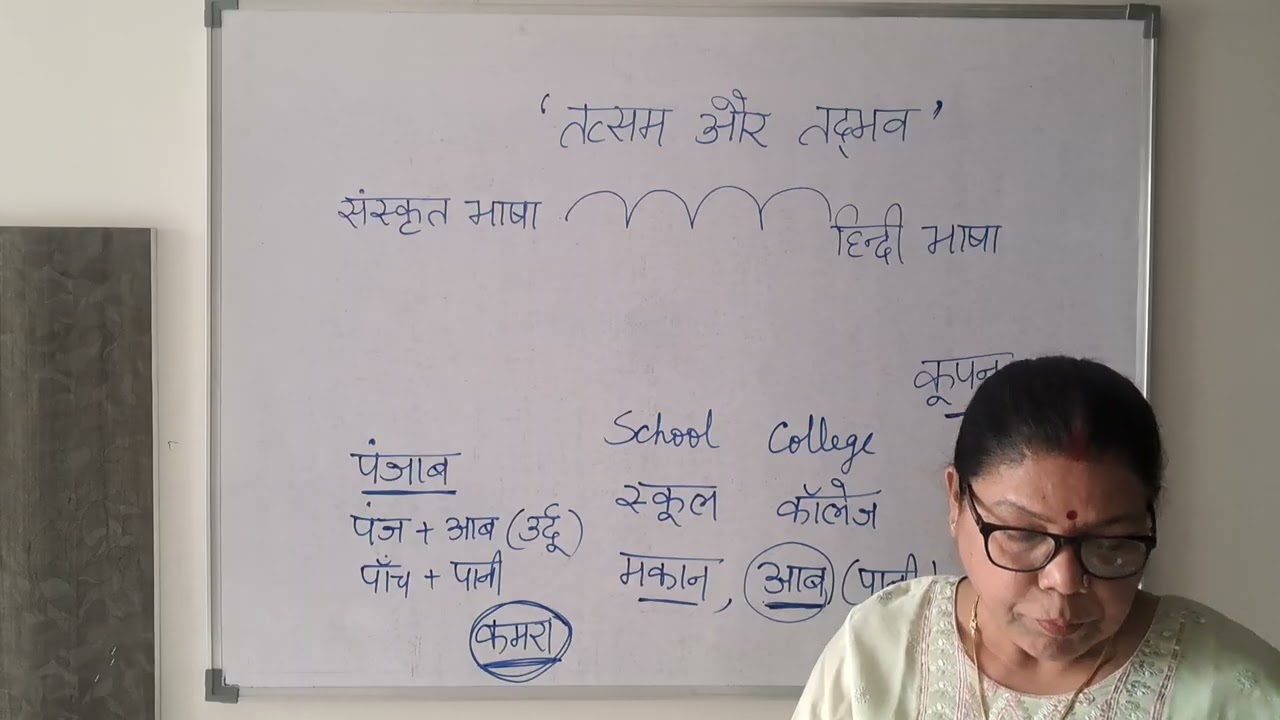 ‘तत्सम और तद्भव’
संस्कृत भाषा
हिन्दी भाषा
कूपन
School College
पंजाब
स्कूल कॉलेज
पंज + आब (उर्दू)
पाँच + पानी
मकान, आब (पानी
कमरा